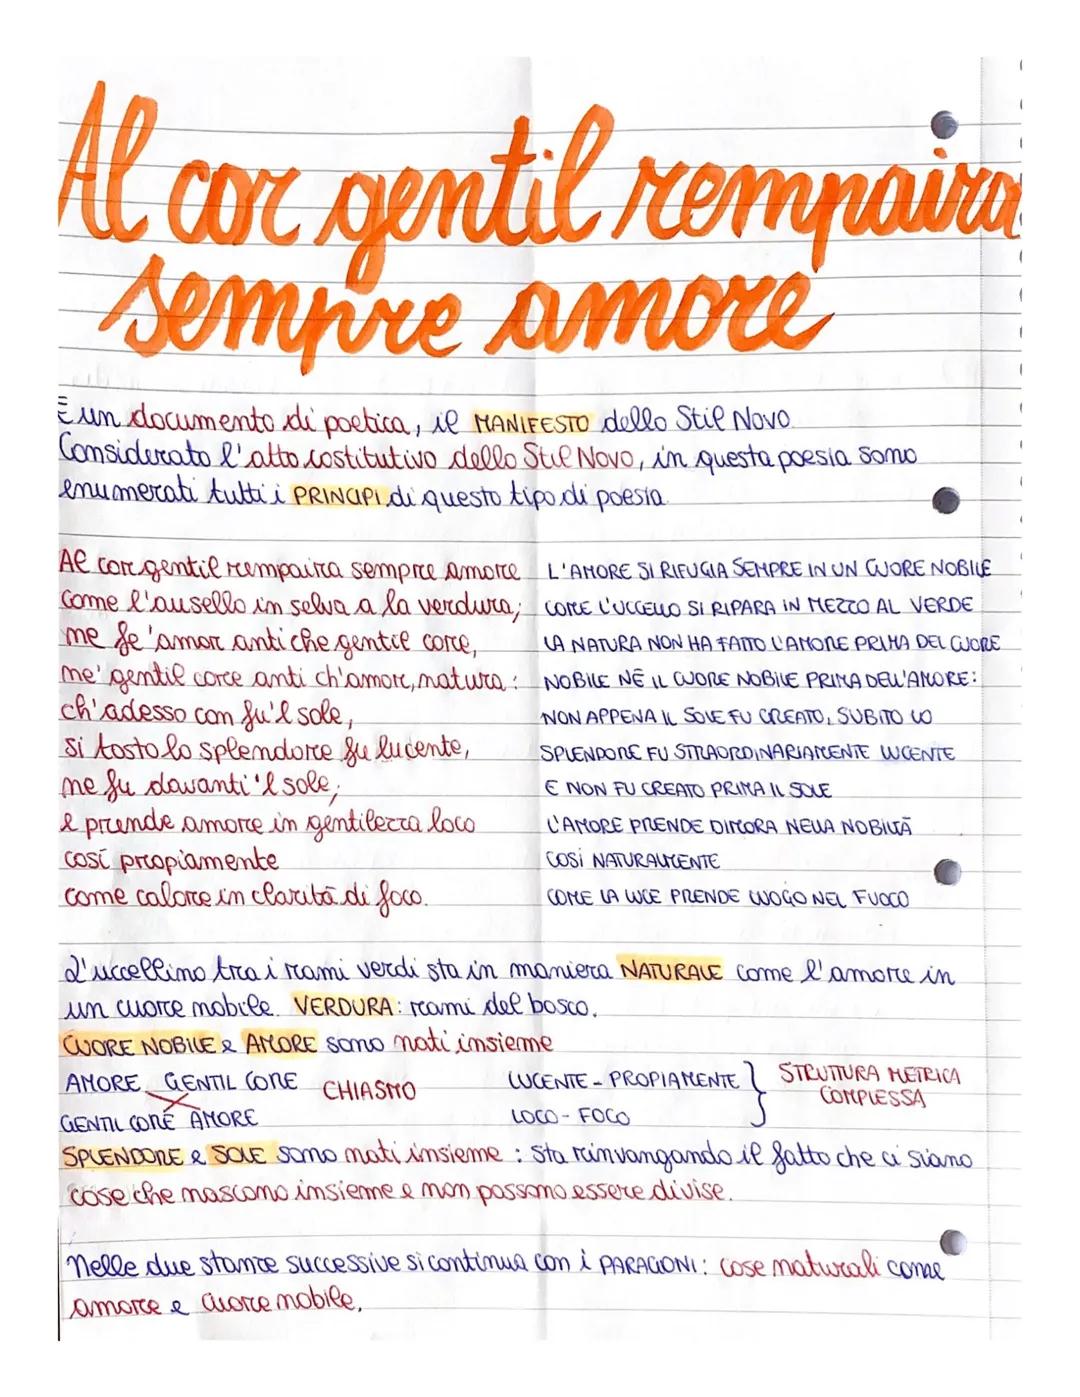 Al cor gentil rempaira
sempre amore
È un documento di poetica, il MANIFESTO dello Stil Novo.
Considerato l'atto costitutivo dello Stil Novo, in questa poesia sono
enumerati tutti i PRINCIPI di questo tipo di poesia.
Al cor gentil rempaira sempre amore L'AMORE SI RIFUGIA SEMPRE IN UN CUORE NOBILE
Come l'ausello in selva a la verdura; COME L'UCCELLO SI RIPARA IN MEZZO AL VERDE
né fe'amor anti che gentil core, LA NATURA NON HA FATTO L'AMORE PRIMA DEL CUORE
né gentil core anti ch'amor, natura: NOBILE NÉ IL CUORE NOBILE PRIMA DELL'AMORE:
ch'adesso con fu'l sole, NON APPENA IL SOLE FU CREATO, SUBITO LO
si tosto lo splendore fu lucente, SPLENDORE FU STRAORDINARIAMENTE LUCENTE
né fu davanti 'l sole; E NON FU CREATO PRIMA IL SOLE
e prende amore in gentilezza loco L'AMORE PRENDE DIMORA NELLA NOBILTÀ
così propiamente COSÌ NATURALMENTE
come calore in clarità di foco. COME LA LUCE PRENDE LUOGO NEL FUOCO
L'uccellino tra i rami verdi sta in maniera NATURALE come l'amore in
un cuore nobile. VERDURA: rami del bosco.
CUORE NOBILE e AMORE sono nati insieme
AMORE GENTIL CORE CHIASMO LUCENTE - PROPIAMENTE } STRUTTURA METRICA
GENTIL CORE AMORE LOCO - FOCO COMPLESSA
SPLENDORE e SOLE sono nati insieme: sta rinvangando il fatto che ci siano
cose che nascono insieme e non possono essere divise.
Nelle due stanze successive si continua con i PARAGONI: cose naturali come
amore e cuore nobile.